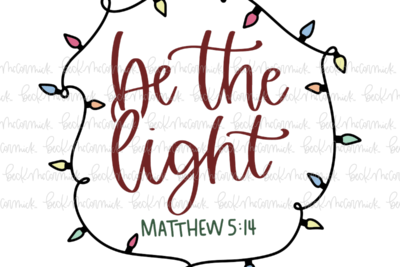 be the
light
MATTHEW 5:14